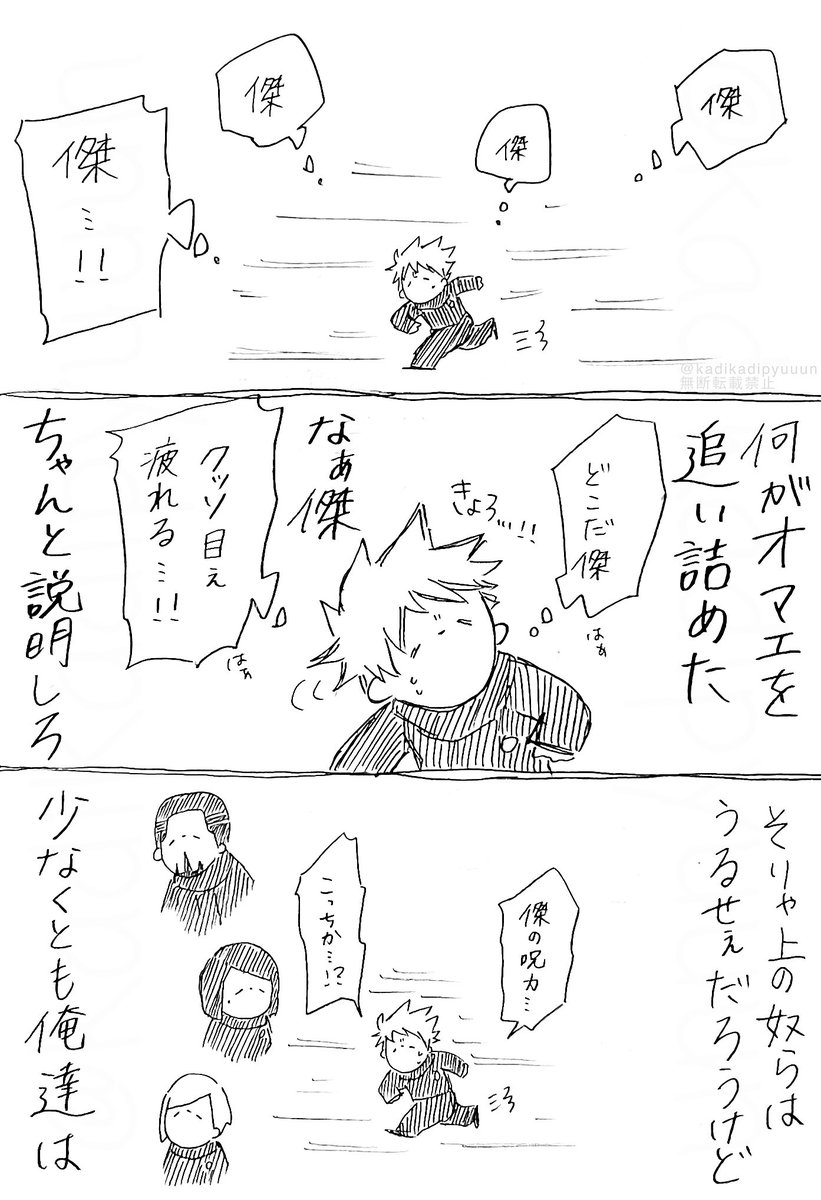 傑
傑
傑
傑
…!!
ミろ
@kadikadipyuuun
無断転載禁止
何がオマエを
追い詰めた
どこだ傑
はぁ
きょろ…!!
なぁ傑
クッソ目え
疲れる…!!
はぁ
ちゃんと説明しろ
そりゃ上の奴らは
うるせぇだろうけど
傑の呪力…
こっちか…!?
ミろ
少なくとも俺達は